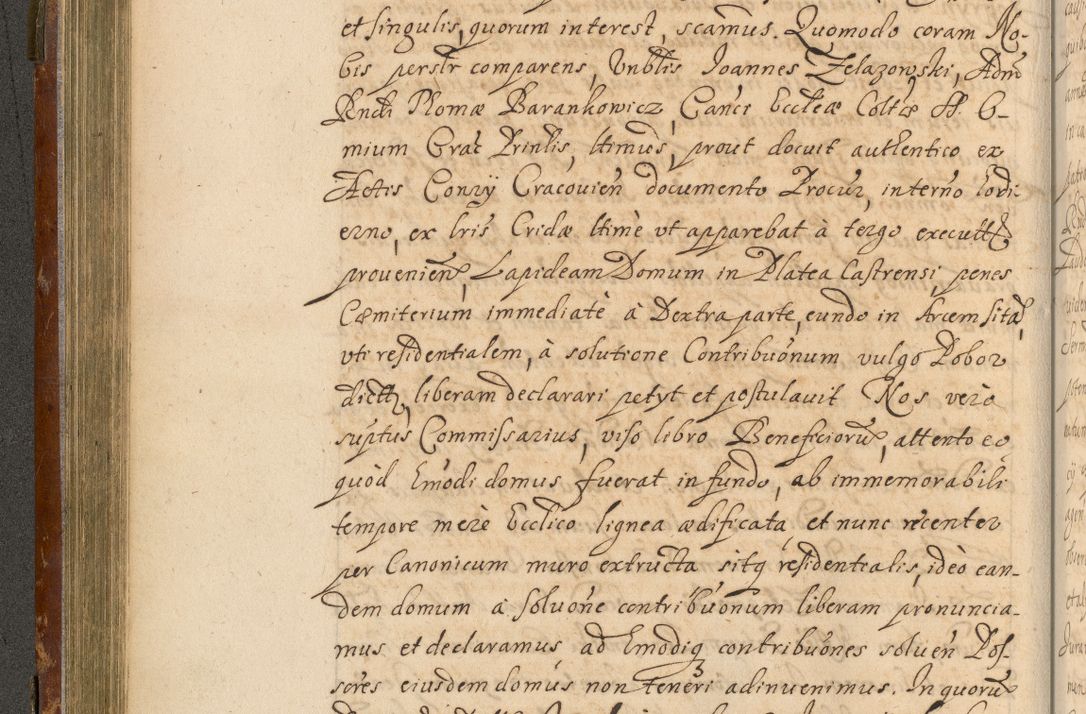 et singulis, quorum interest, scamus. Quomodo coram No-
bis persr comparens, Vnblis Joannes Zelazowski, Adm
Rndi Thomæ Barankowicz, Canci Eccleæ Coltæ SS. O-
mium Grat Prinlis, ltimus, prout docuit authentico ex
Actis Conry Cracouien documento Procur, in terno hodi
erno, ex lris Cridæ ltime vt apparebat à tergo executt
prouenien, Lapideam Domum in Platea Castrensi, penes
Cæmiterium immediatè à Dextra parte, eundo in Arcem sita,
vti residentialem, à solutione Contribuonum vulgo Pobor
dictt, liberam declarari petyt et postulauit Nos vero
suptus Commissarius, viso libro Beneficioru, attento eo
quòd hmodi domus fuerat in fundo, ab immemorabili
tempore merè Ecclico lignea ædificata, et nunc recenter
per Canonicum muro extructa sitq residentialis, ideò ean-
dem domum à soluone contribuonum liberam pronuncia-
mus et declaramus ad hmodiq contribuones soluen Pos-
sores eiusdem domus non teneri adinuenimus. In quoru